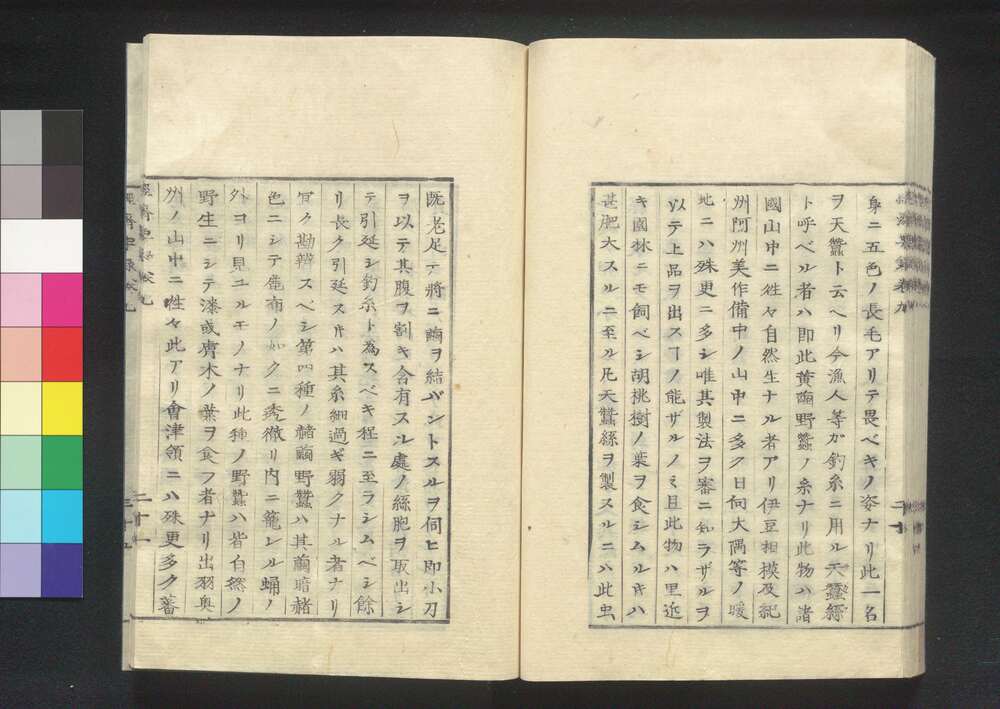 身ニ五色ノ長毛アリテ畏ベキノ姿ナリ此一名
ヲ天蠶ト云ヘリ今漁人等ガ釣糸ニ用ル天蠶絲
ト呼ベル者ハ即此黄繭野蠶ノ糸ナリ此物ハ諸
國山中ニ徃々自然生ナル者アリ伊豆相模及紀
州阿州美作備中ノ山中ニ多ク日向大隅等ノ暖
地ニハ殊更ニ多シ唯其製法ヲ審ニ知ラザルヲ
以テ上品ヲ出スヿノ能ザルノミ且此物ハ里近
キ園林ニモ飼ベシ胡桃樹ノ葉ヲ食シムルキハ
甚肥大スルニ至ル凡天蠶絲ヲ製スルニハ此虫
既老足テ將ニ繭ヲ結バントスルヲ伺ヒ即小刀
ヲ以テ其腹ヲ割キ含有スル處ノ絲胞ヲ取出シ
テ引延シ釣糸ト為スベキ程ニ至ラシムベシ餘
リ長ク引延スキハ其糸細過ギ弱クナル者ナリ
宜ク勘辨スベシ第四種ノ赭繭野蠶ハ其繭暗赭
色ニシテ麁布ノ如クニ透徹リ内ニ籠レル蛹ノ
外ヨリ見ユルモノナリ此種ノ野蠶ハ皆自然ノ
野生ニシテ漆或膚木ノ葉ヲ食フ者ナリ出羽奥
州ノ山中ニ徃々此アリ會津領ニハ殊更多ク蕃
二十一